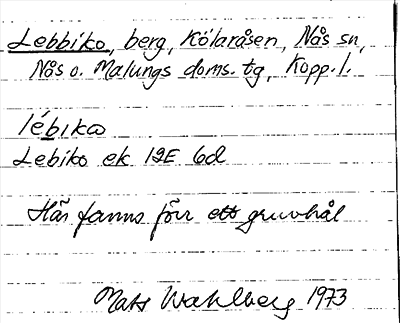 Lebbiko, berg, Kölaråsen, Nås sn,
Nås o. Malungs doms. tg, Kopp. l.
lébika
Lebiko ek 12E 6d
Här fanns förr ett gruvhål
Mats Wahlberg 1973